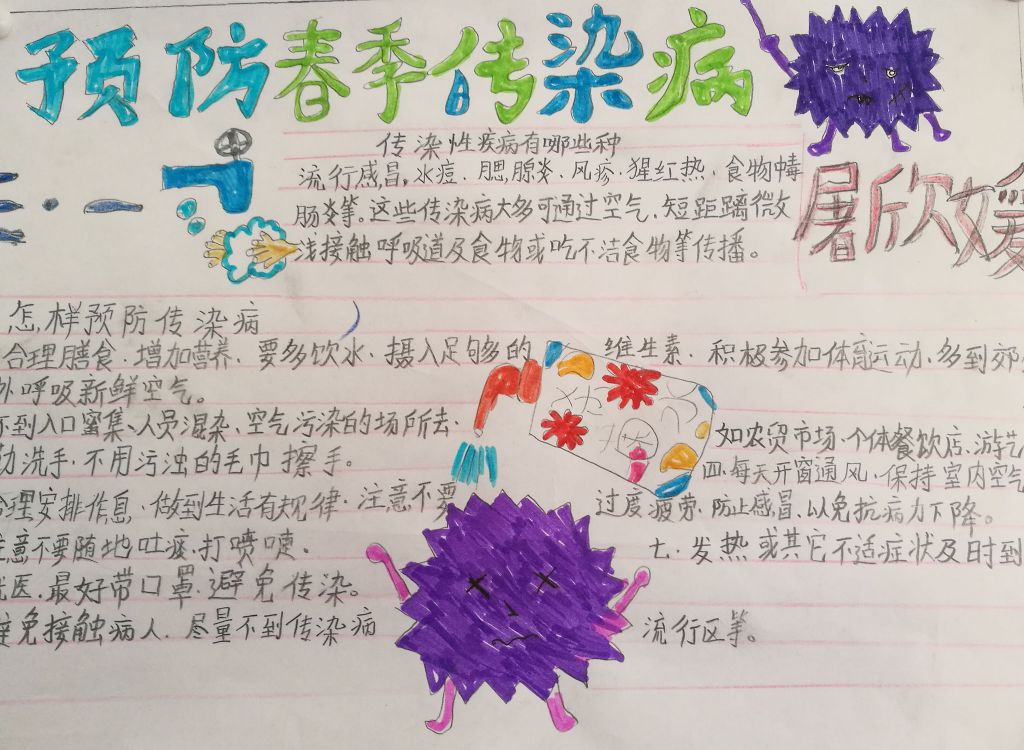 预防春季传染病
传染性疾病有哪些种
流行感冒，水痘、腮腺炎、风疹、猩红热、食物中毒
肠炎等。这些传染病大多可通过空气、短距离微
浅接触呼吸道及食物或吃不洁食物等传播。
屠欣媛
怎样预防传染病
合理膳食、增加营养、要多饮水、摄入足够多的维生素、积极参加体育运动、多到郊
外呼吸新鲜空气。
不到人口密集、人员混杂、空气污染的场所去、如农贸市场、个体餐饮店、游艺
勤洗手、不用污浊的毛巾擦手。四、每天开窗通风、保持室内空气
合理安排作息、做到生活有规律、注意不要过度疲劳、防止感冒、以免抗病力下降。
注意不要随地吐痰、打喷嚏、七、发热或其它不适症状及时到
就医、最好带口罩、避免传染。
避免接触病人、尽量不到传染病流行区等。